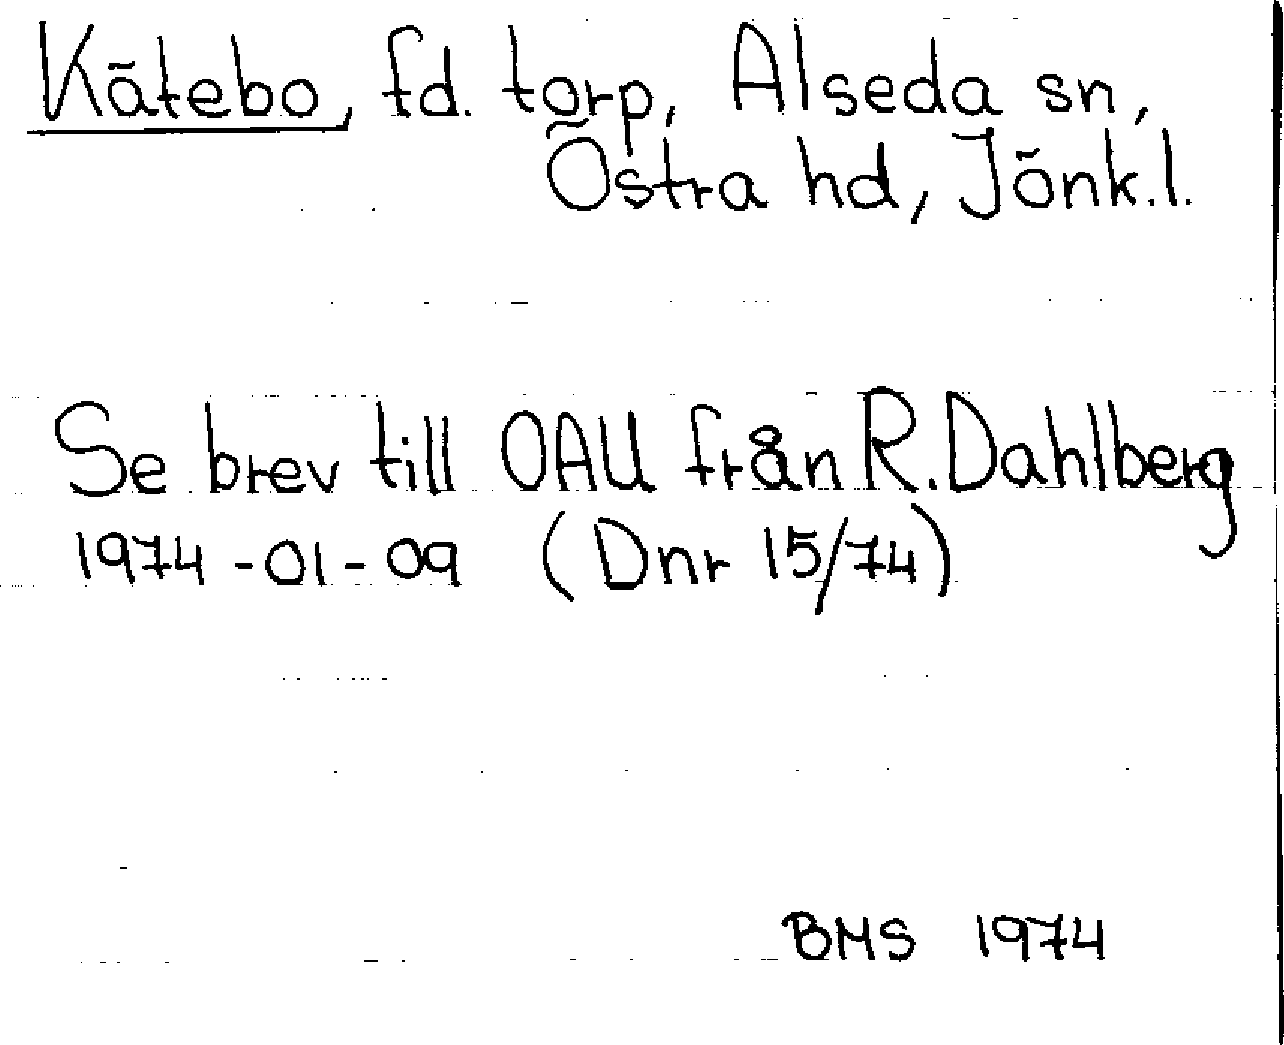 Kätebo, fd. torp, Alseda sn,
Östra hd, Jönk.l.
Se brev till OAU från R. Dahlberg
1974-01-09 (Dnr 15/74)
BMS 1974